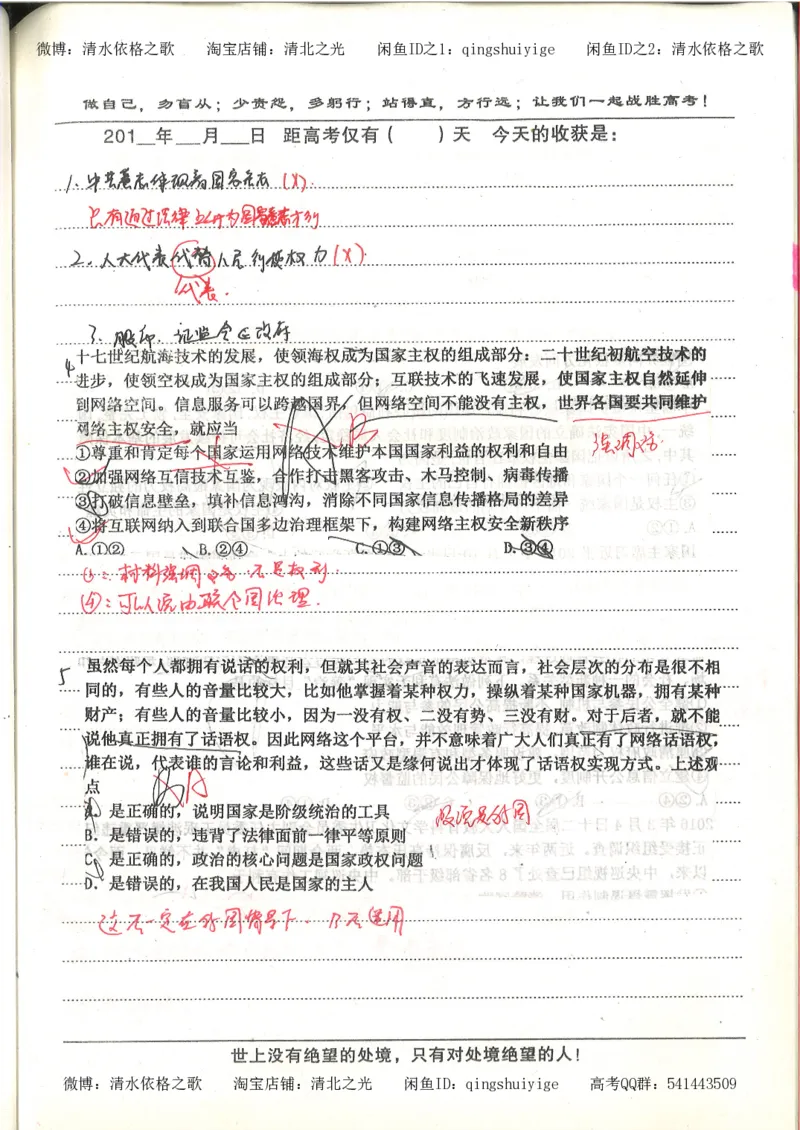 微博：清水依格之歌 淘宝店铺：清北之光 闲鱼ID之1：qingshuiyige 闲鱼ID之2：清水依格之歌
做自己，勿盲从；少责怨，多躬行；站得直，方行远；让我们一起战胜高考！
201__年 ___月___日 距高考仅有（ ）天 今天的收获是：
1. 中共意志体现为国家意志 (×).
只有通过法律上升为国家意志才行
2. 人大代表代替人民行使权力 (×).
代表.
3. 证监会∈政府
4 十七世纪航海技术的发展，使领海权成为国家主权的组成部分：二十世纪初航空技术的
进步，使领空权成为国家主权的组成部分；互联技术的飞速发展，使国家主权自然延伸
到网络空间。信息服务可以跨越国界，但网络空间不能没有主权，世界各国要共同维护
网络主权安全，就应当
B
强调
①尊重和肯定每个国家运用网络技术维护本国国家利益的权利和自由
②加强网络互信技术互鉴，合作打击黑客攻击、木马控制、病毒传播
③打破信息壁垒，填补信息鸿沟，消除不同国家信息传播格局的差异
④将互联网纳入到联合国多边治理框架下，构建网络主权安全新秩序
A.①② B.②④ C.①③ D.③④
①：材料强调 不是权利.
④：可以说由联合国治理.
5 虽然每个人都拥有说话的权利，但就其社会声音的表达而言，社会层次的分布是很不相
同的，有些人的音量比较大，比如他掌握着某种权力，操纵着某种国家机器，拥有某种
财产；有些人的音量比较小，因为一没有权、二没有势、三没有财。对于后者，就不能
说他真正拥有了话语权。因此网络这个平台，并不意味着广大人们真正有了网络话语权，
谁在说，代表谁的言论和利益，这些话又是缘何说出才体现了话语权实现方式。上述观
点
A
A．是正确的，说明国家是阶级统治的工具
B．是错误的，违背了法律面前一律平等原则
C．是正确的，政治的核心问题是国家政权问题
D．是错误的，在我国人民是国家的主人
这不一定在我国情景下. B不适用
世上没有绝望的处境，只有对处境绝望的人！
微博：清水依格之歌 淘宝店铺：清北之光 闲鱼ID：qingshuiyige 高考QQ群：541443509